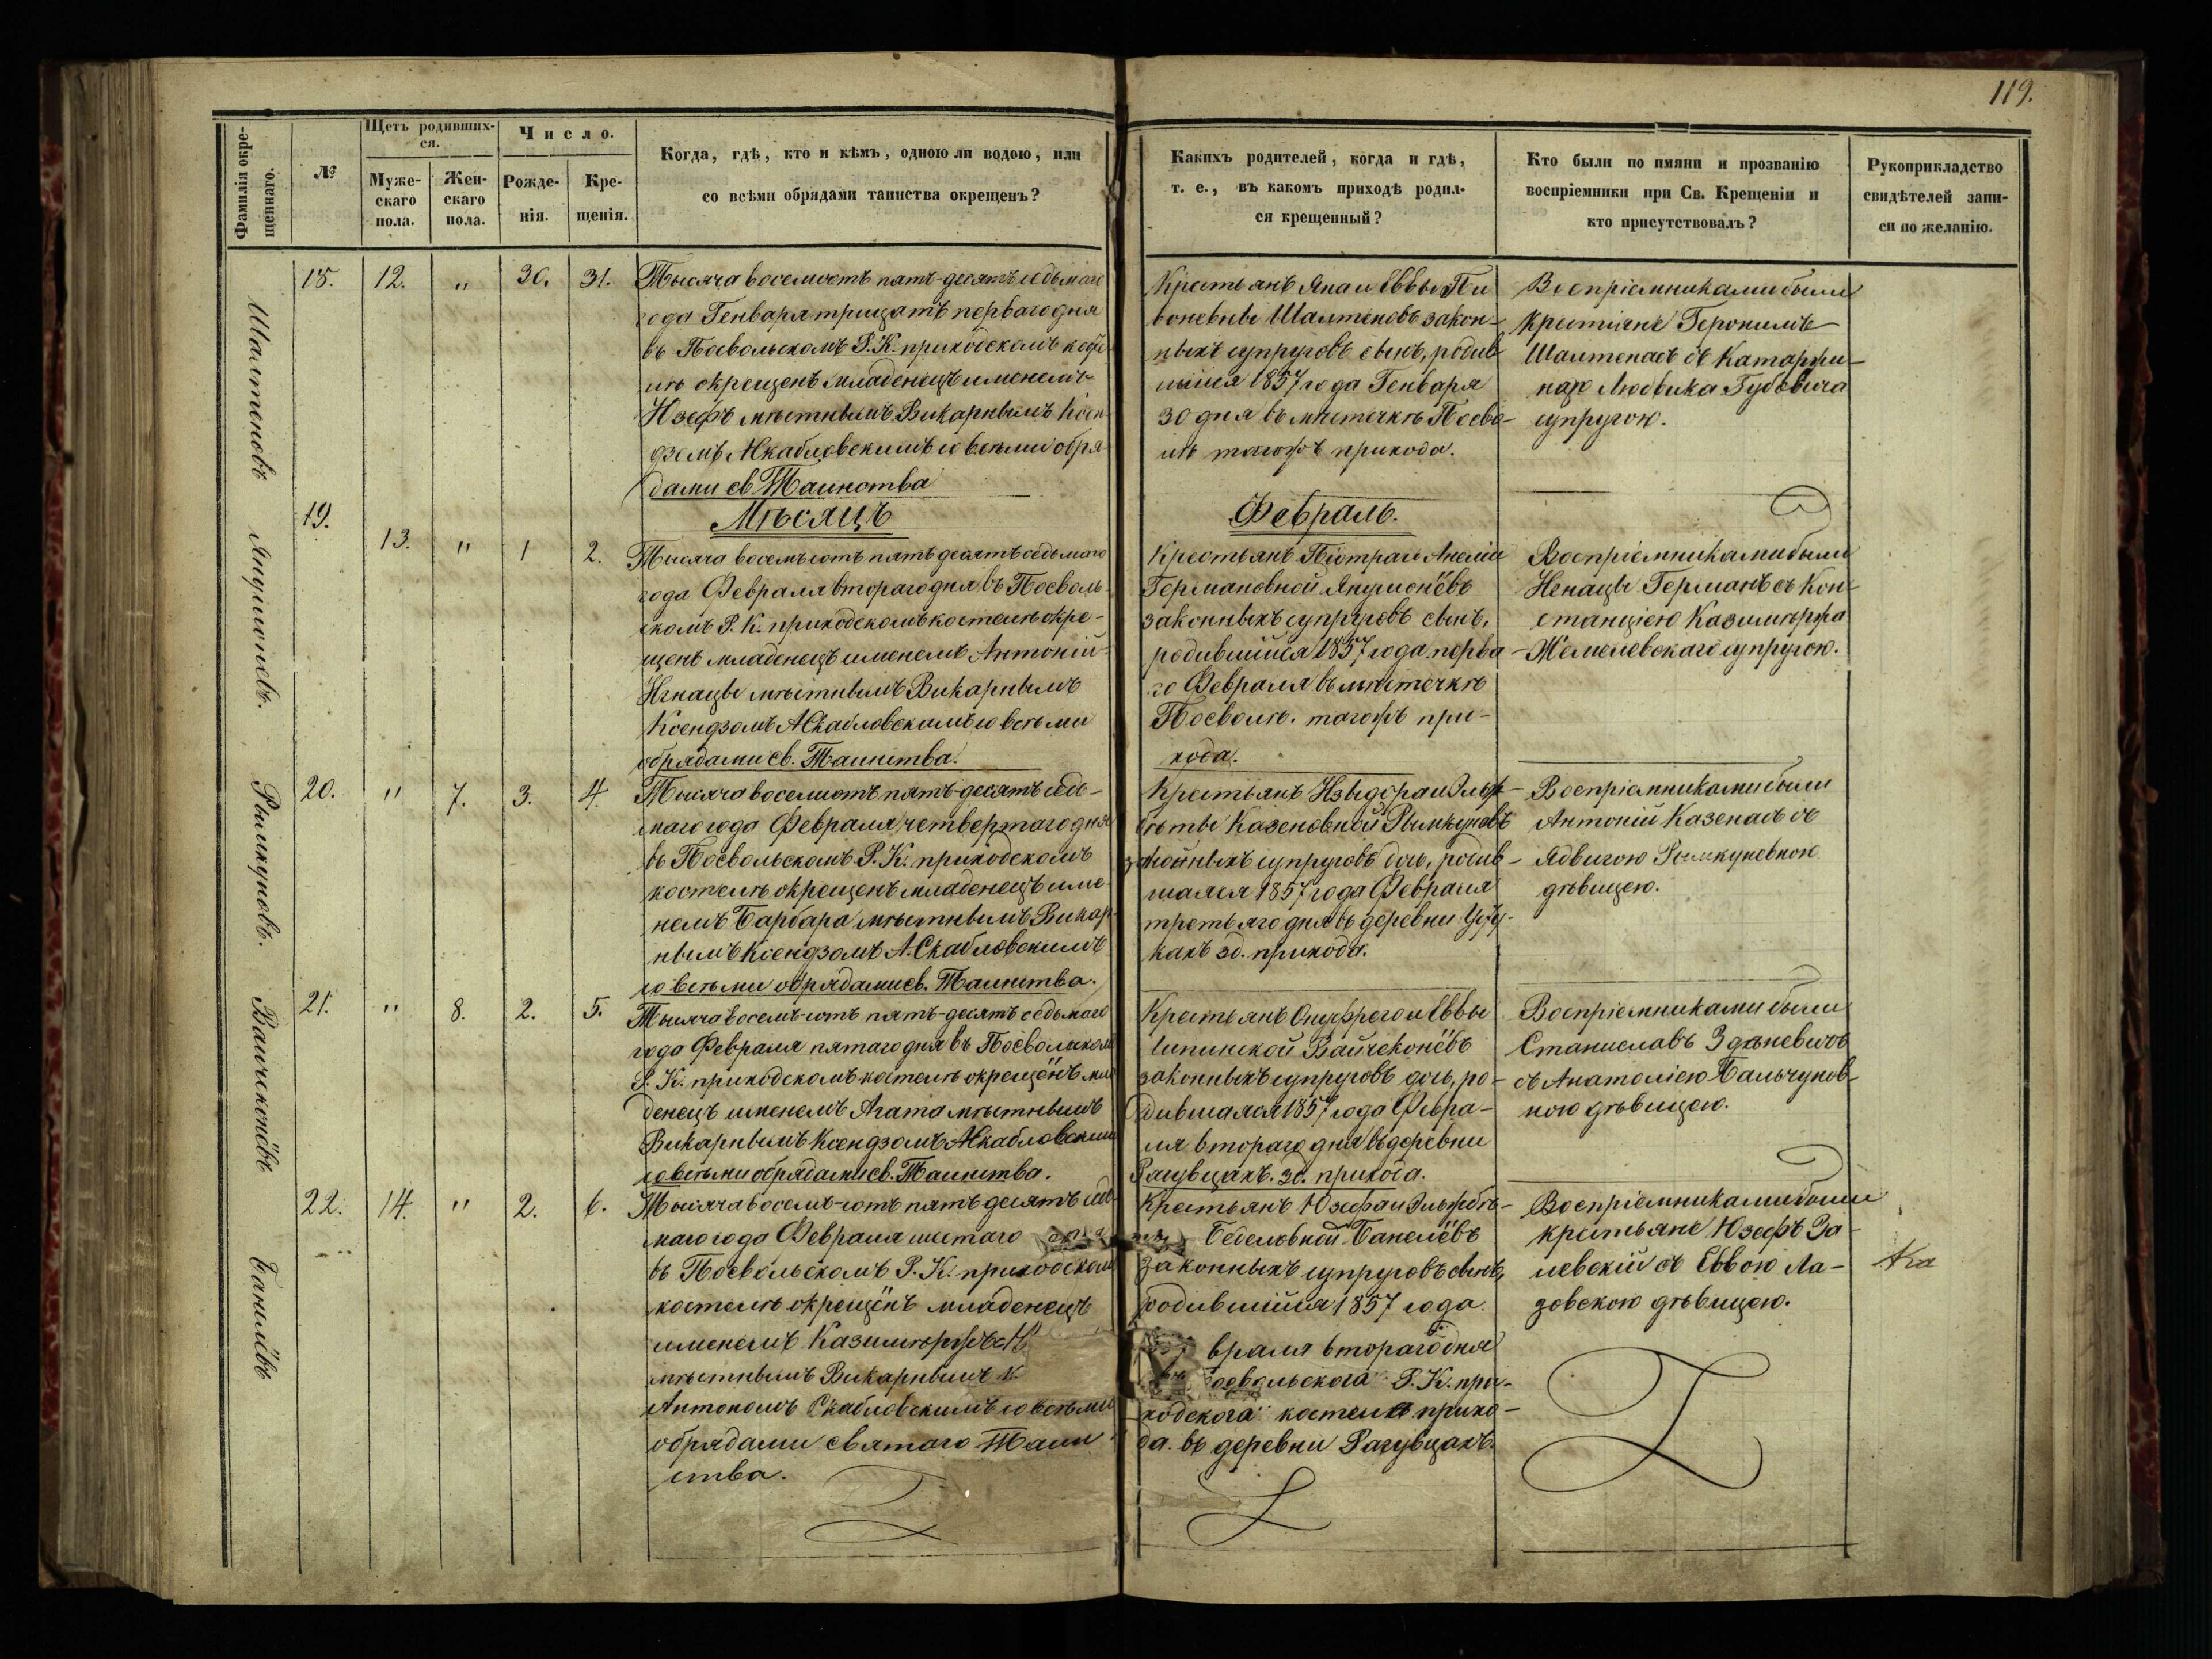 119.
Фамилія окре-
щеннаго.
№
Щетъ родивших-
ся.
Муже-
скаго
пола.
Жен-
скаго
пола.
Число.
Рожде-
нія.
Кре-
щенія.
Когда, гдѣ, кто и кѣмъ, одною ли водою, или
со всѣми обрядами таинства окрещенъ?
Какихъ родителей, когда и гдѣ,
т. е., въ какомъ приходѣ родил-
ся крещенный?
Кто были по имяни и прозванію
воспріемники при Св. Крещеніи и
кто присутствовалъ?
Рукоприкладство
свидѣтелей запи-
си по желанію.
Шалтеновъ
18. 12. " 30. 31.
Тысяча восемсотъ пять-десятъ седьмаго
года Генваря трицать перваго дня
въ Посвольскомъ Р. К. приходскомъ косте
лѣ окрещенъ младенецъ именемъ
Изефъ мѣстнымъ Викарнымъ Ксен
дземъ А Скабловскимъ со всѣми обря
дами св Таинства
Крестьянъ Яна и Еввы Пи
воневны Шалтеновъ закон-
ныхъ супруговъ сынъ, родив
шийся 1857 года Генваря
30 дня въ мѣстечкѣ Посво-
лѣ тогожъ прихода.
Воспріемниками были
крестіяне Геронимъ
Шалтенасъ съ Катаржи-
ною Людвика Гудовича
супругою.
Мѣсяцъ Февраль.
Янушонёвъ.
19. 13. " 1 2.
Тысяча восемъсотъ пятьдесятъ седьмаго
года Февраля втораго дня въ Посволь-
скомъ Р. К. приходскомъ костелѣ окре-
щенъ младенецъ именемъ Антоній
Игнацы мѣстнымъ Викарнымъ
Ксендзомъ А Скабловскимъ со всѣми
обрядами св. Таинства.
Крестьянъ Піотра и Анеліи
Германовной Янушонёвъ
законныхъ супруговъ сынъ,
родившійся 1857 года перва
го Февраля въ мѣстечкѣ
Посволѣ. тагожъ при-
хода.
Воспріемниками были
Игнацы Германъ съ Кон-
станціею Казимѣржа
Жемелевскаго супругою.
Рымкуновъ.
20. " 7. 3. 4.
Тысяча восемсотъ пять-десятъ седь-
маго года Февраля четвертаго дня
въ Посвольскомъ Р. К. приходскомъ
костелѣ окрещенъ младенецъ име-
немъ Барбара мѣстнымъ Викар-
нымъ Ксендзомъ А. Скабловскимъ
со всѣми обрядами св. Таинства.
Крестьянъ Изыдора и Эльж-
бѣты Казеновной Рымкуновъ
законныхъ супруговъ дочь, родив-
шаяся 1857 года Февраля
третьяго дня въ деревни
кахъ зд. прихода.
Воспріемниками были
Антоній Казенасъ съ
Ядвигою Рымкуневною
дѣвицею.
Вайчеконёвъ
21. " 8. 2. 5.
Тысяча восемъ-сотъ пять-десятъ седьмаго
года Февраля пятаго дня въ Посвольском
Р. К. приходскомъ костелѣ окрещёнъ мла
денецъ именемъ Агата мѣстнымъ
Викарнымъ Ксендзомъ А Скабловским
со всѣми обрядами св. Таинства.
Крестьянъ Онуфрего и Еввы
Вайчеконёвъ
законныхъ супруговъ дочь, ро-
дившаяся 1857 года Февра-
ля втораго дня въ деревни
Рагувцахъ. зд. прихода.
Воспріемниками были
Станиславъ Зданевичъ
съ Анатоліею Бальчунов-
ною дѣвицею.
Банелёвъ
22. 14. " 2. 6.
Тысяча восемъ-сотъ пять десятъ седь
маго года Февраля шестаго
въ Посвольскомъ Р. К. приходском
костелѣ окрещёнъ младенецъ
именемъ Казимѣржъ
мѣстнымъ Викарнымъ К.
Антономъ Скабловскимъ со всѣми
обрядами святаго Таин
ства.
Крестьянъ Юзефа и Эльжбѣ-
Беделовной Банелёвъ
законныхъ супруговъ сынъ,
родившійся 1857 года
враля втораго дня
Посвольскога Р. К. при-
ходскога костела прихо-
да. въ деревни Рагувцахъ.
Воспріемниками были
крестьяне Юзефъ За-
левскій съ Еввою Ла-
зовскою дѣвицею.